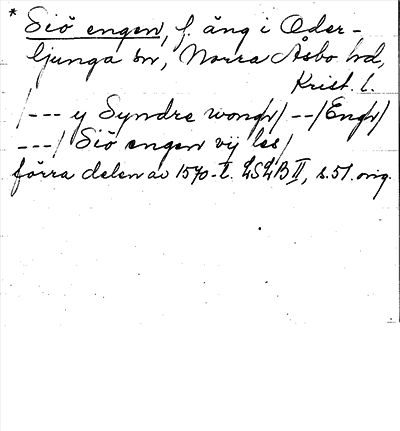 * Siö engen, f. äng i Oder-
ljunga sn, Norra Åsbo hd,
Krist. l.
/--- y Syndre wongn/ --/Engn/
---/ Siö engen vij les/
förra delen av 1570-t. LSLB II, s. 51. orig.